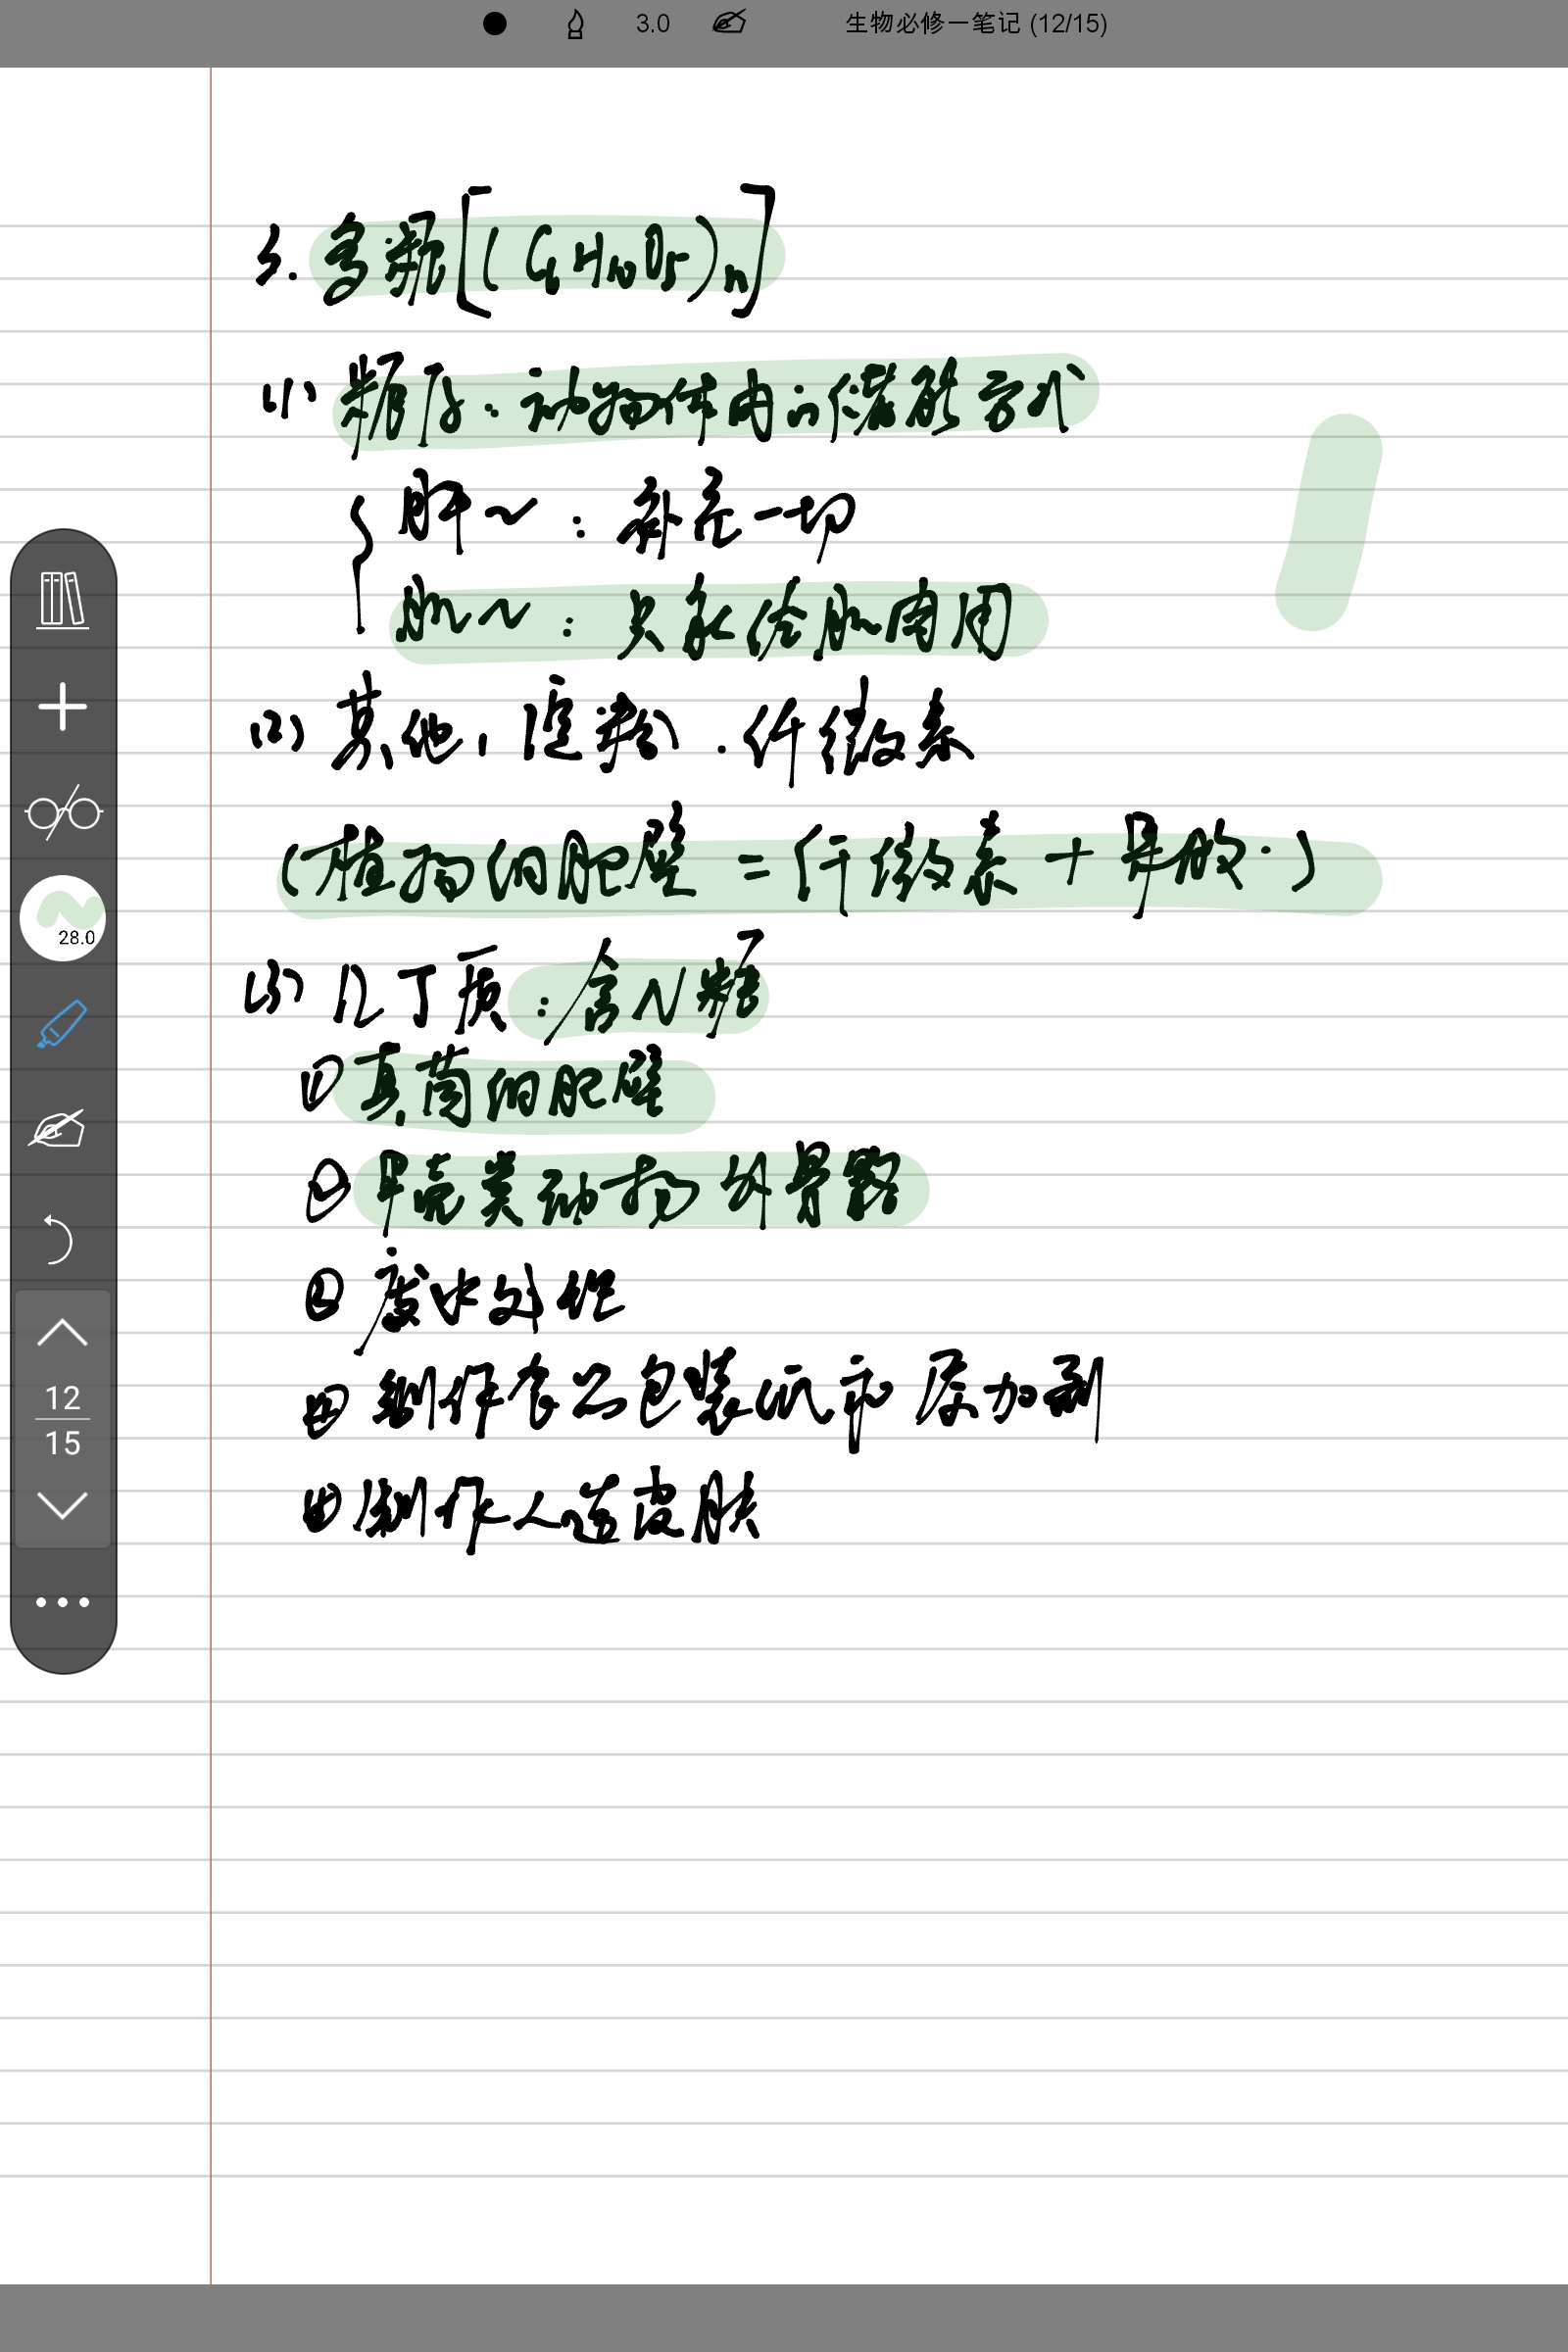 3.0 生物必修一笔记 (12/15)
3. 多糖[(C6H10O5)n]
(1) 糖原：动物体内的储能方式
肝～：补充一切
肌～：只承给肌肉用
(2) 其他：淀粉．纤维素
(植物细胞壁 = 纤维素 + 果胶．)
(3) 几丁质：含N糖
① 真菌细胞壁
② 甲壳类动物外骨骼
③ 废水处理
④ 制作食品包装纸和添加剂
⑤ 制作人造皮肤
28.0
12
15